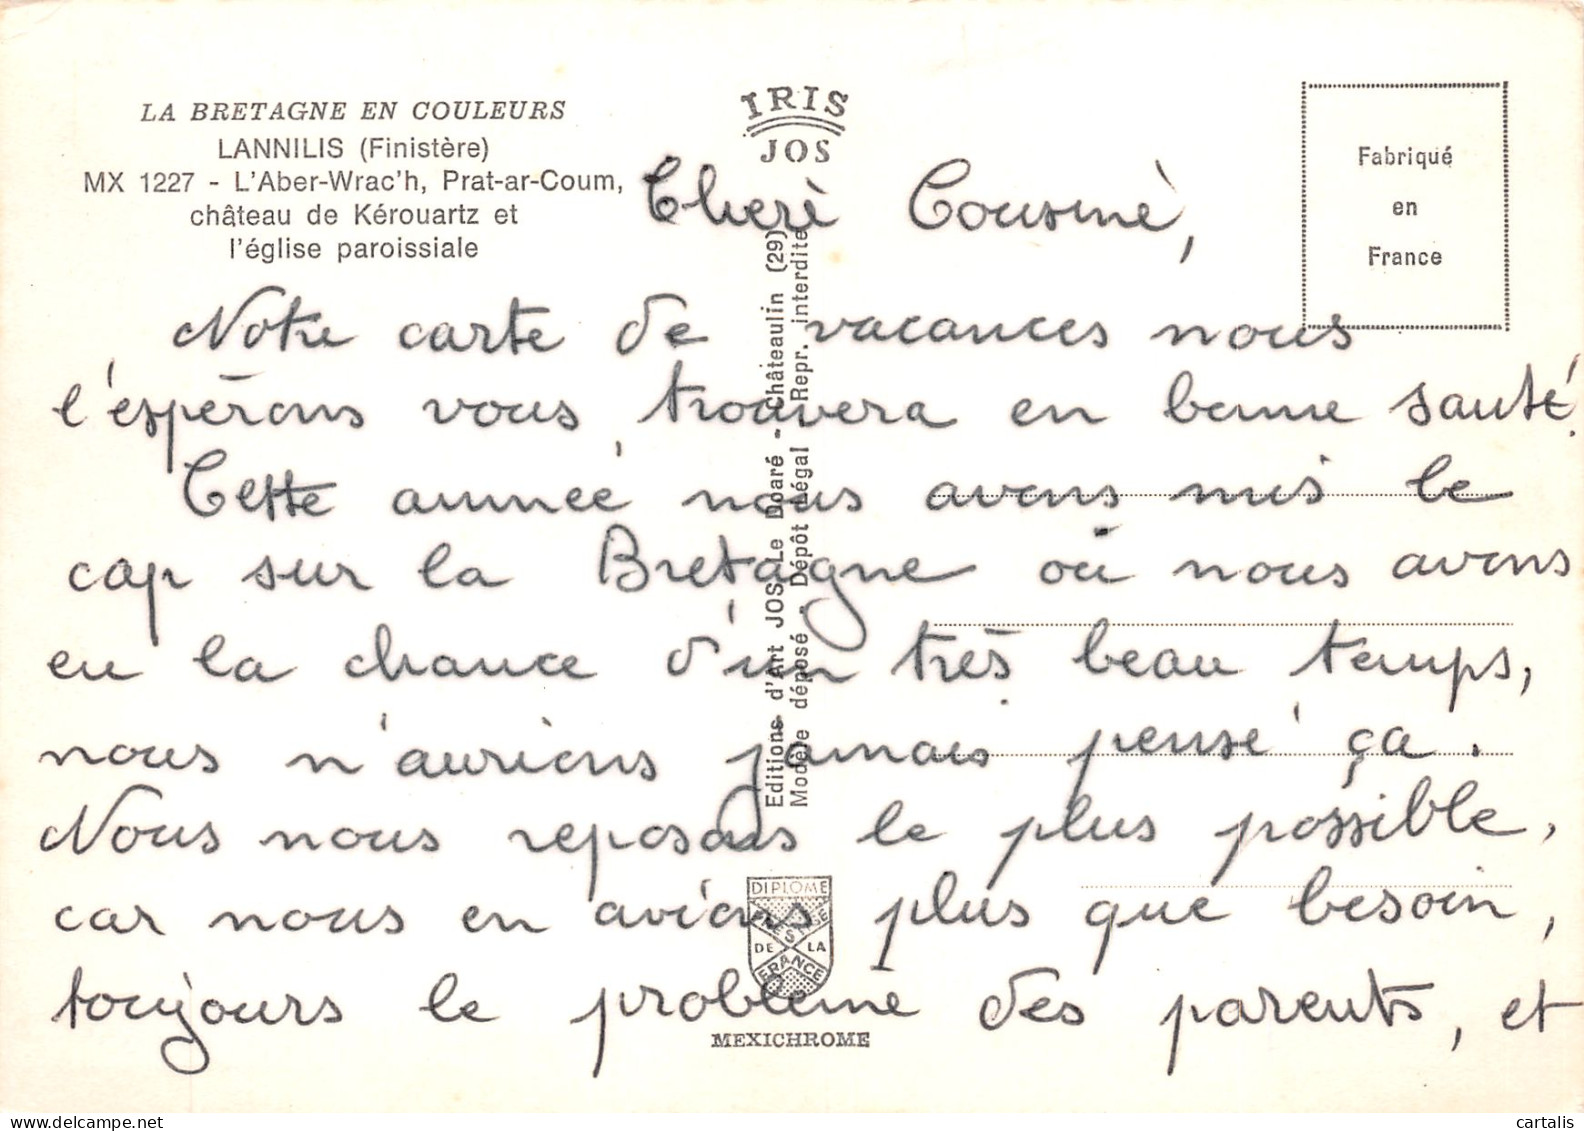 LA BRETAGNE EN COULEURS
LANNILIS (Finistère)
MX 1227 - L'Aber-Wrac'h, Prat-ar-Coum,
château de Kérouartz et
l'église paroissiale
IRIS
JOS
Fabriqué
en
France
Editions d'Art JOS Le Doaré - Châteaulin (29)
Modèle déposé - Dépôt Légal - Repr. interdite
Cherè Cousinè,
Notre carte de vacances nous
l'espérons vous trouvera en bonne santé.
Cette année, nous avons mis le
cap sur la Bretagne où nous avons
eu la chance d'un très beau temps,
nous n'aurions jamais pensé ça.
Nous nous reposons le plus possible,
car nous en avions plus que besoin,
toujours le problème des parents, et
DIPLOME
PRESTIGE
DE LA
FRANCE
MEXICHROME
cartalis